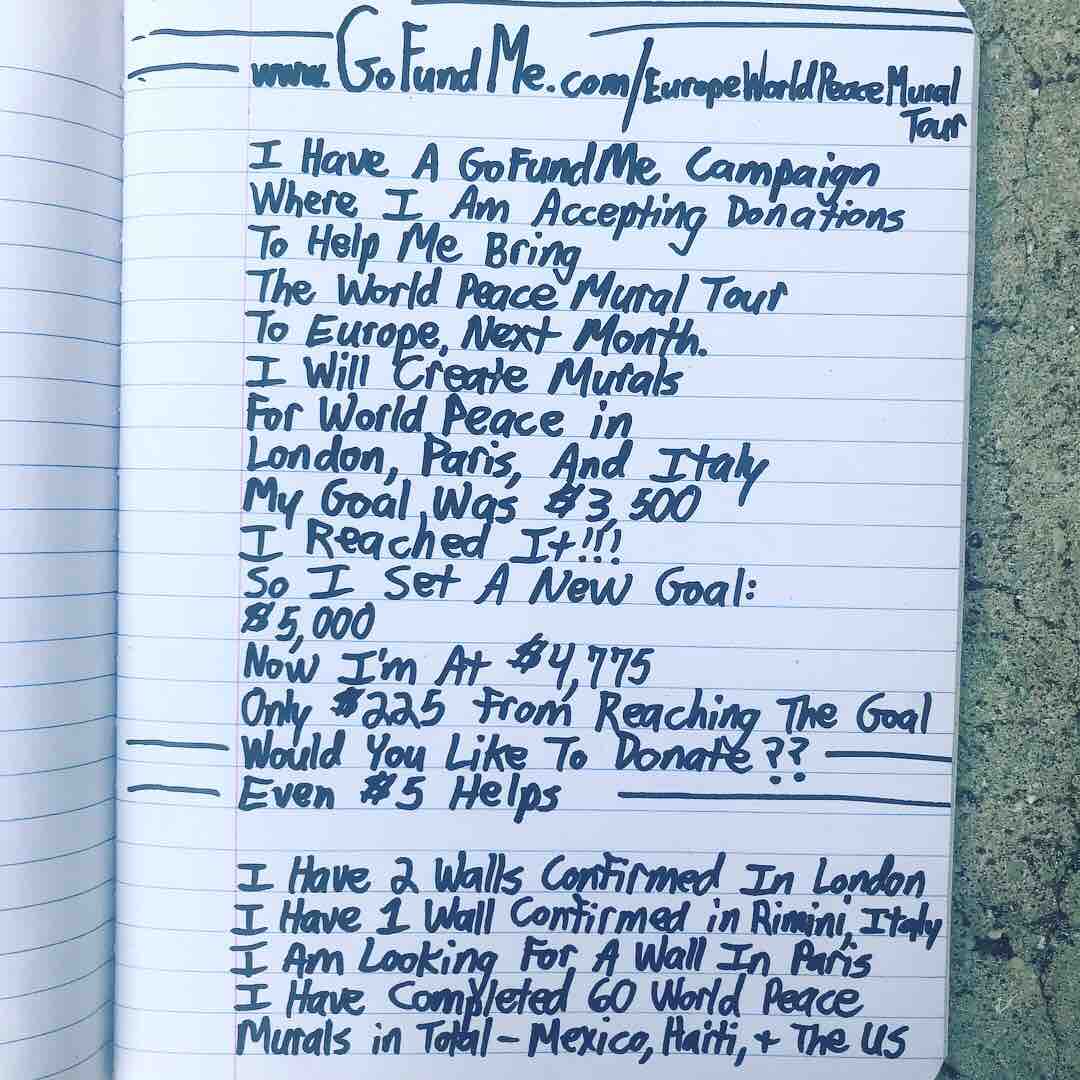 www.GoFundMe.com/EuropeWorldPeaceMural
Tour
I Have A GoFundMe Campaign
Where I Am Accepting Donations
To Help Me Bring
The World Peace Mural Tour
To Europe, Next Month.
I Will Create Murals
For World Peace in
London, Paris, And Italy
My Goal Was $3,500
I Reached It!!!
So I Set A New Goal:
$5,000
Now I'm At $4,775
Only $225 From Reaching The Goal
Would You Like To Donate??
Even $5 Helps
I Have 2 Walls Confirmed In London
I Have 1 Wall Confirmed in Rimini, Italy
I Am Looking For A Wall In Paris
I Have Completed 60 World Peace
Murals in Total - Mexico, Haiti, + The US